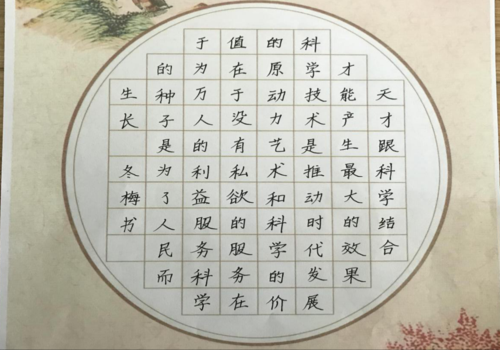 天才跟科学结合
才能产生最大的效果
科学技术是推动时代发展
的原动力艺术和科学的价
值在于没有私欲的服务在
于为万人的利益服务科学
的种子是为了人民而
生长 冬梅书